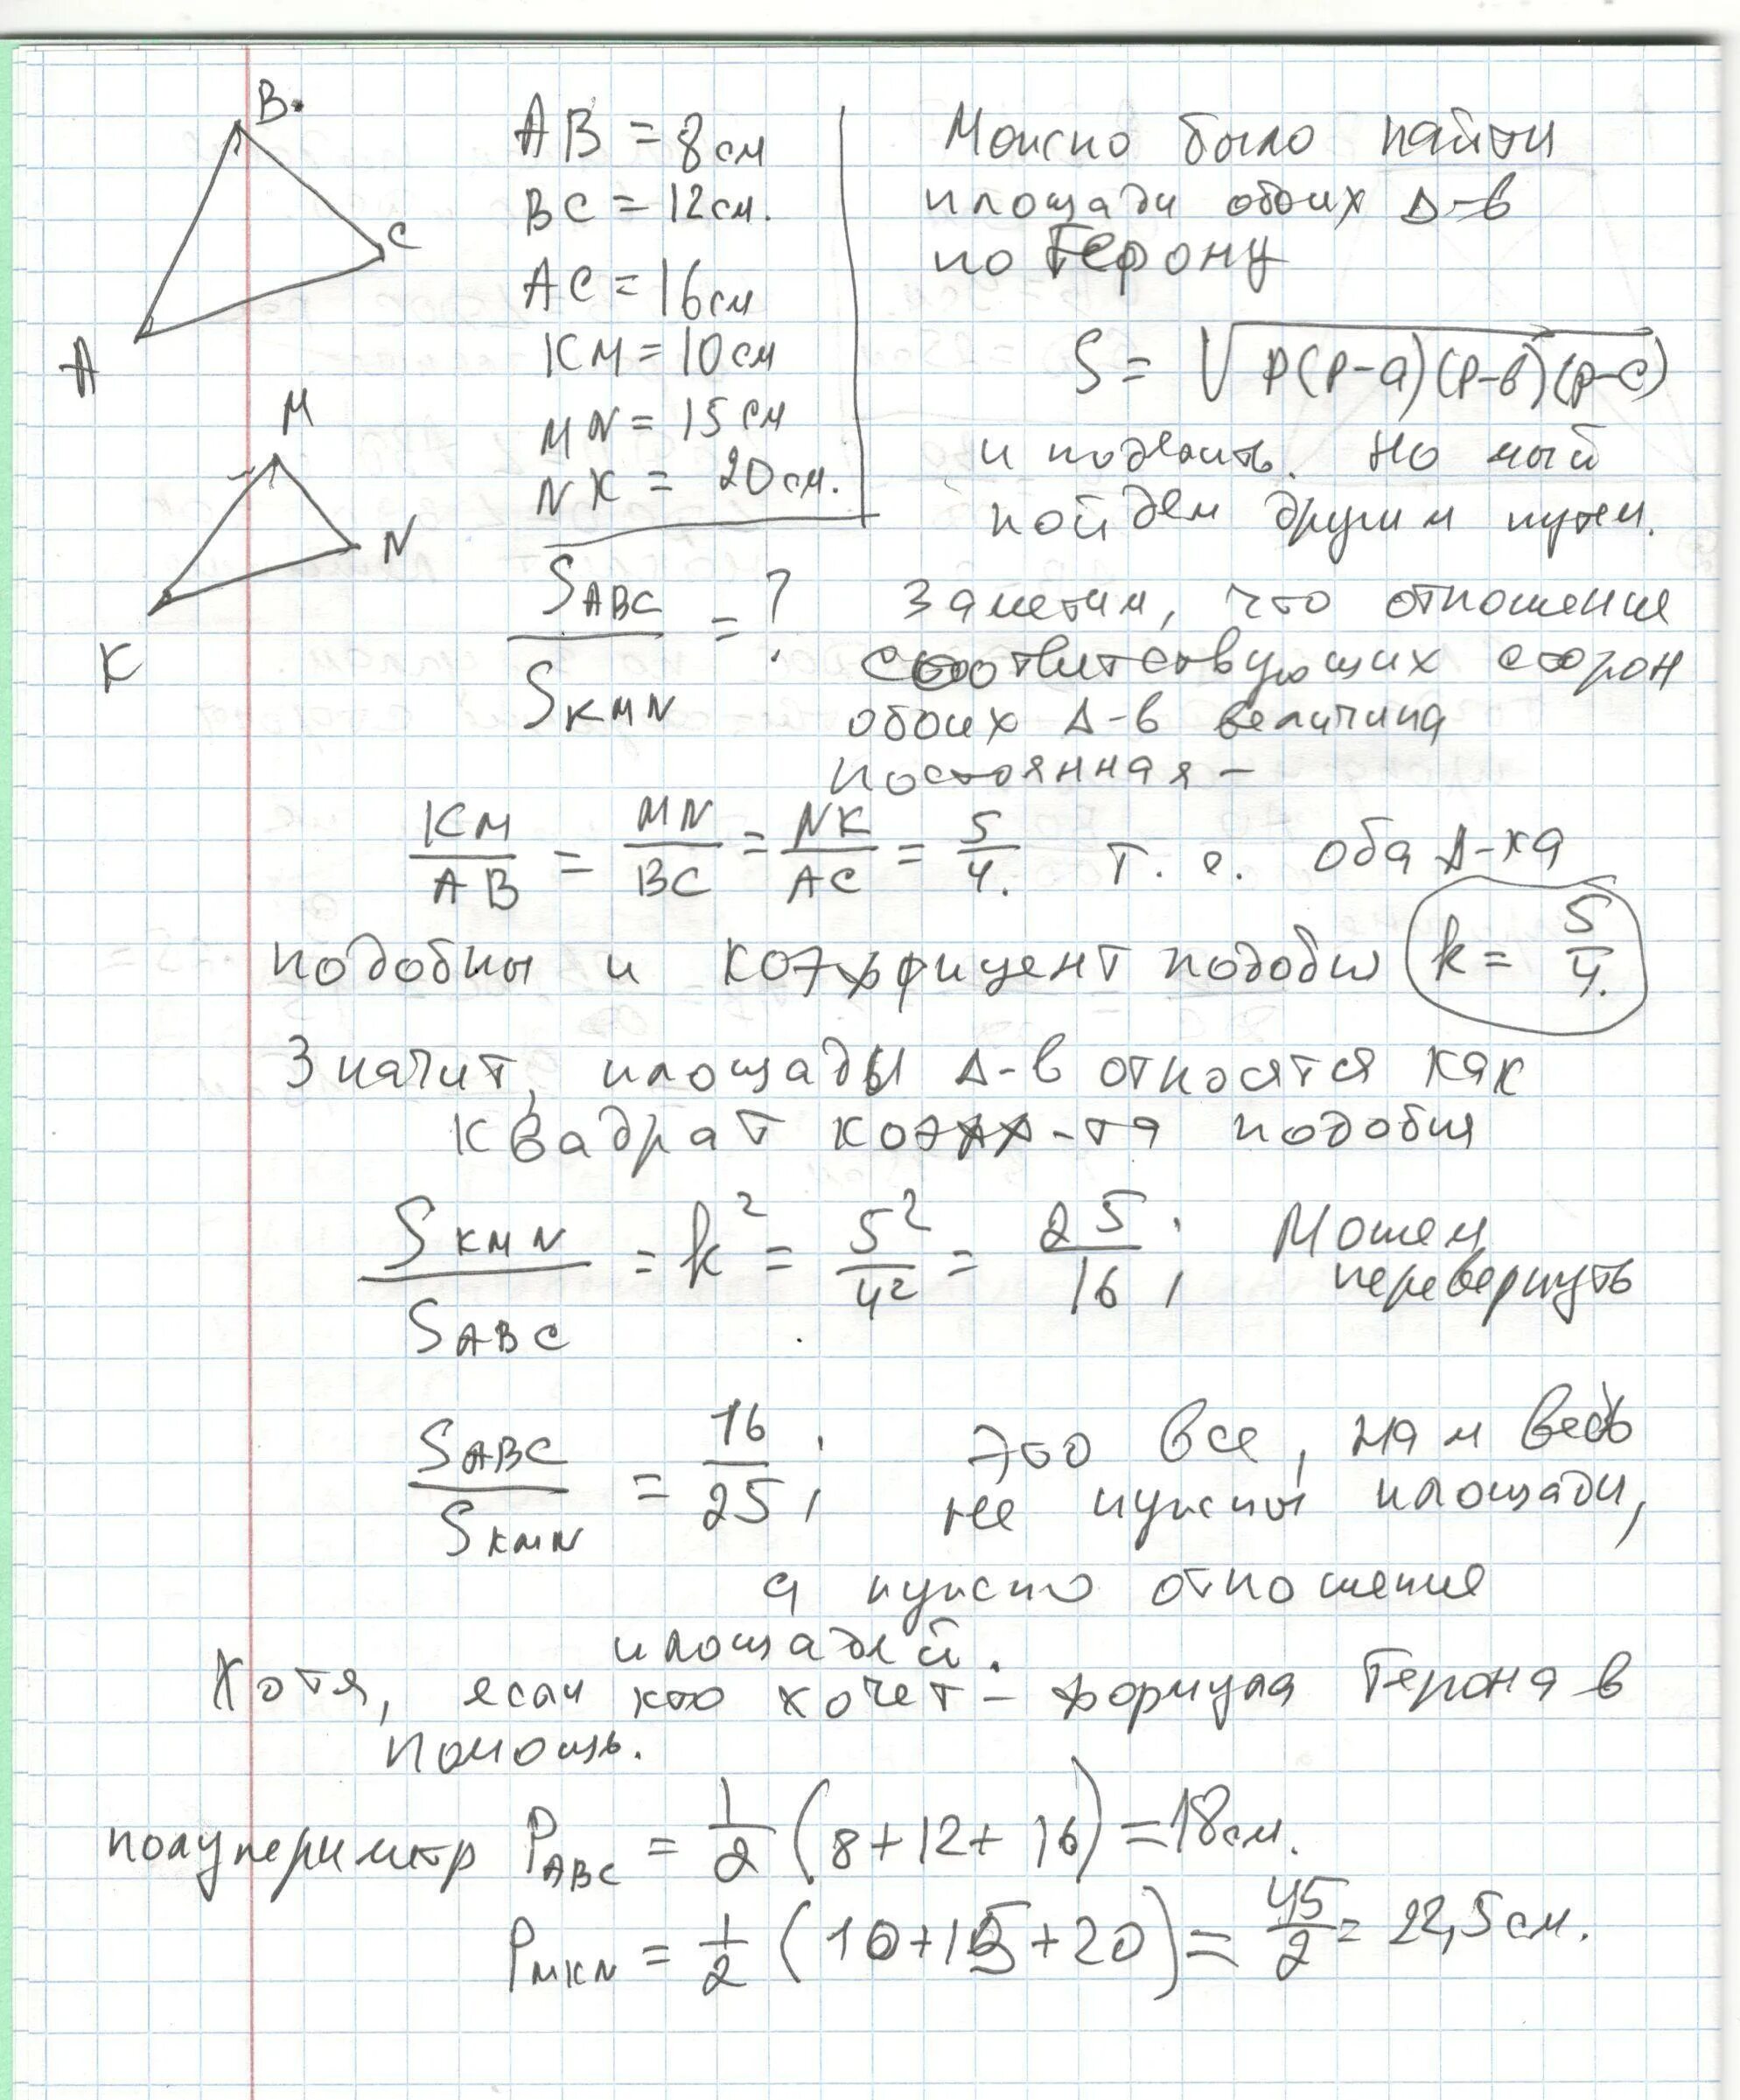 B
C
A
M
N
K
AB = 8см
BC = 12см.
AC = 16см
KM = 10см
MN = 15см
NK = 20см.
S ABC / S KMN = ?
Можно было найти
площади обоих Δ-в
по Герону
S = √p(p-a)(p-в)(p-c)
и поделить. Но мы
пойдем другим путем.
Заметим, что отношение
соответствующих сторон
обоих Δ-в величина
постоянная –
KM/AB = MN/BC = NK/AC = 5/4. т. е. оба Δ-ка
подобны и коэффицент подобия k = 5/4.
Значит, площады Δ-в относятся как
квадрат коэфф-та подобия
S KMN / S ABC = k² = 5²/4² = 25/16; Можем
перевернуть
S ABC / S KMN = 16/25; это все, нам ведь
не нужны площади,
а нужно отношение
площадей.
Хотя, если кто хочет – формула Герона в
помощь.
полупериметр P ABC = 1/2 (8+12+16) = 18см.
P MKN = 1/2 (10+15+20) = 45/2 = 22,5см.